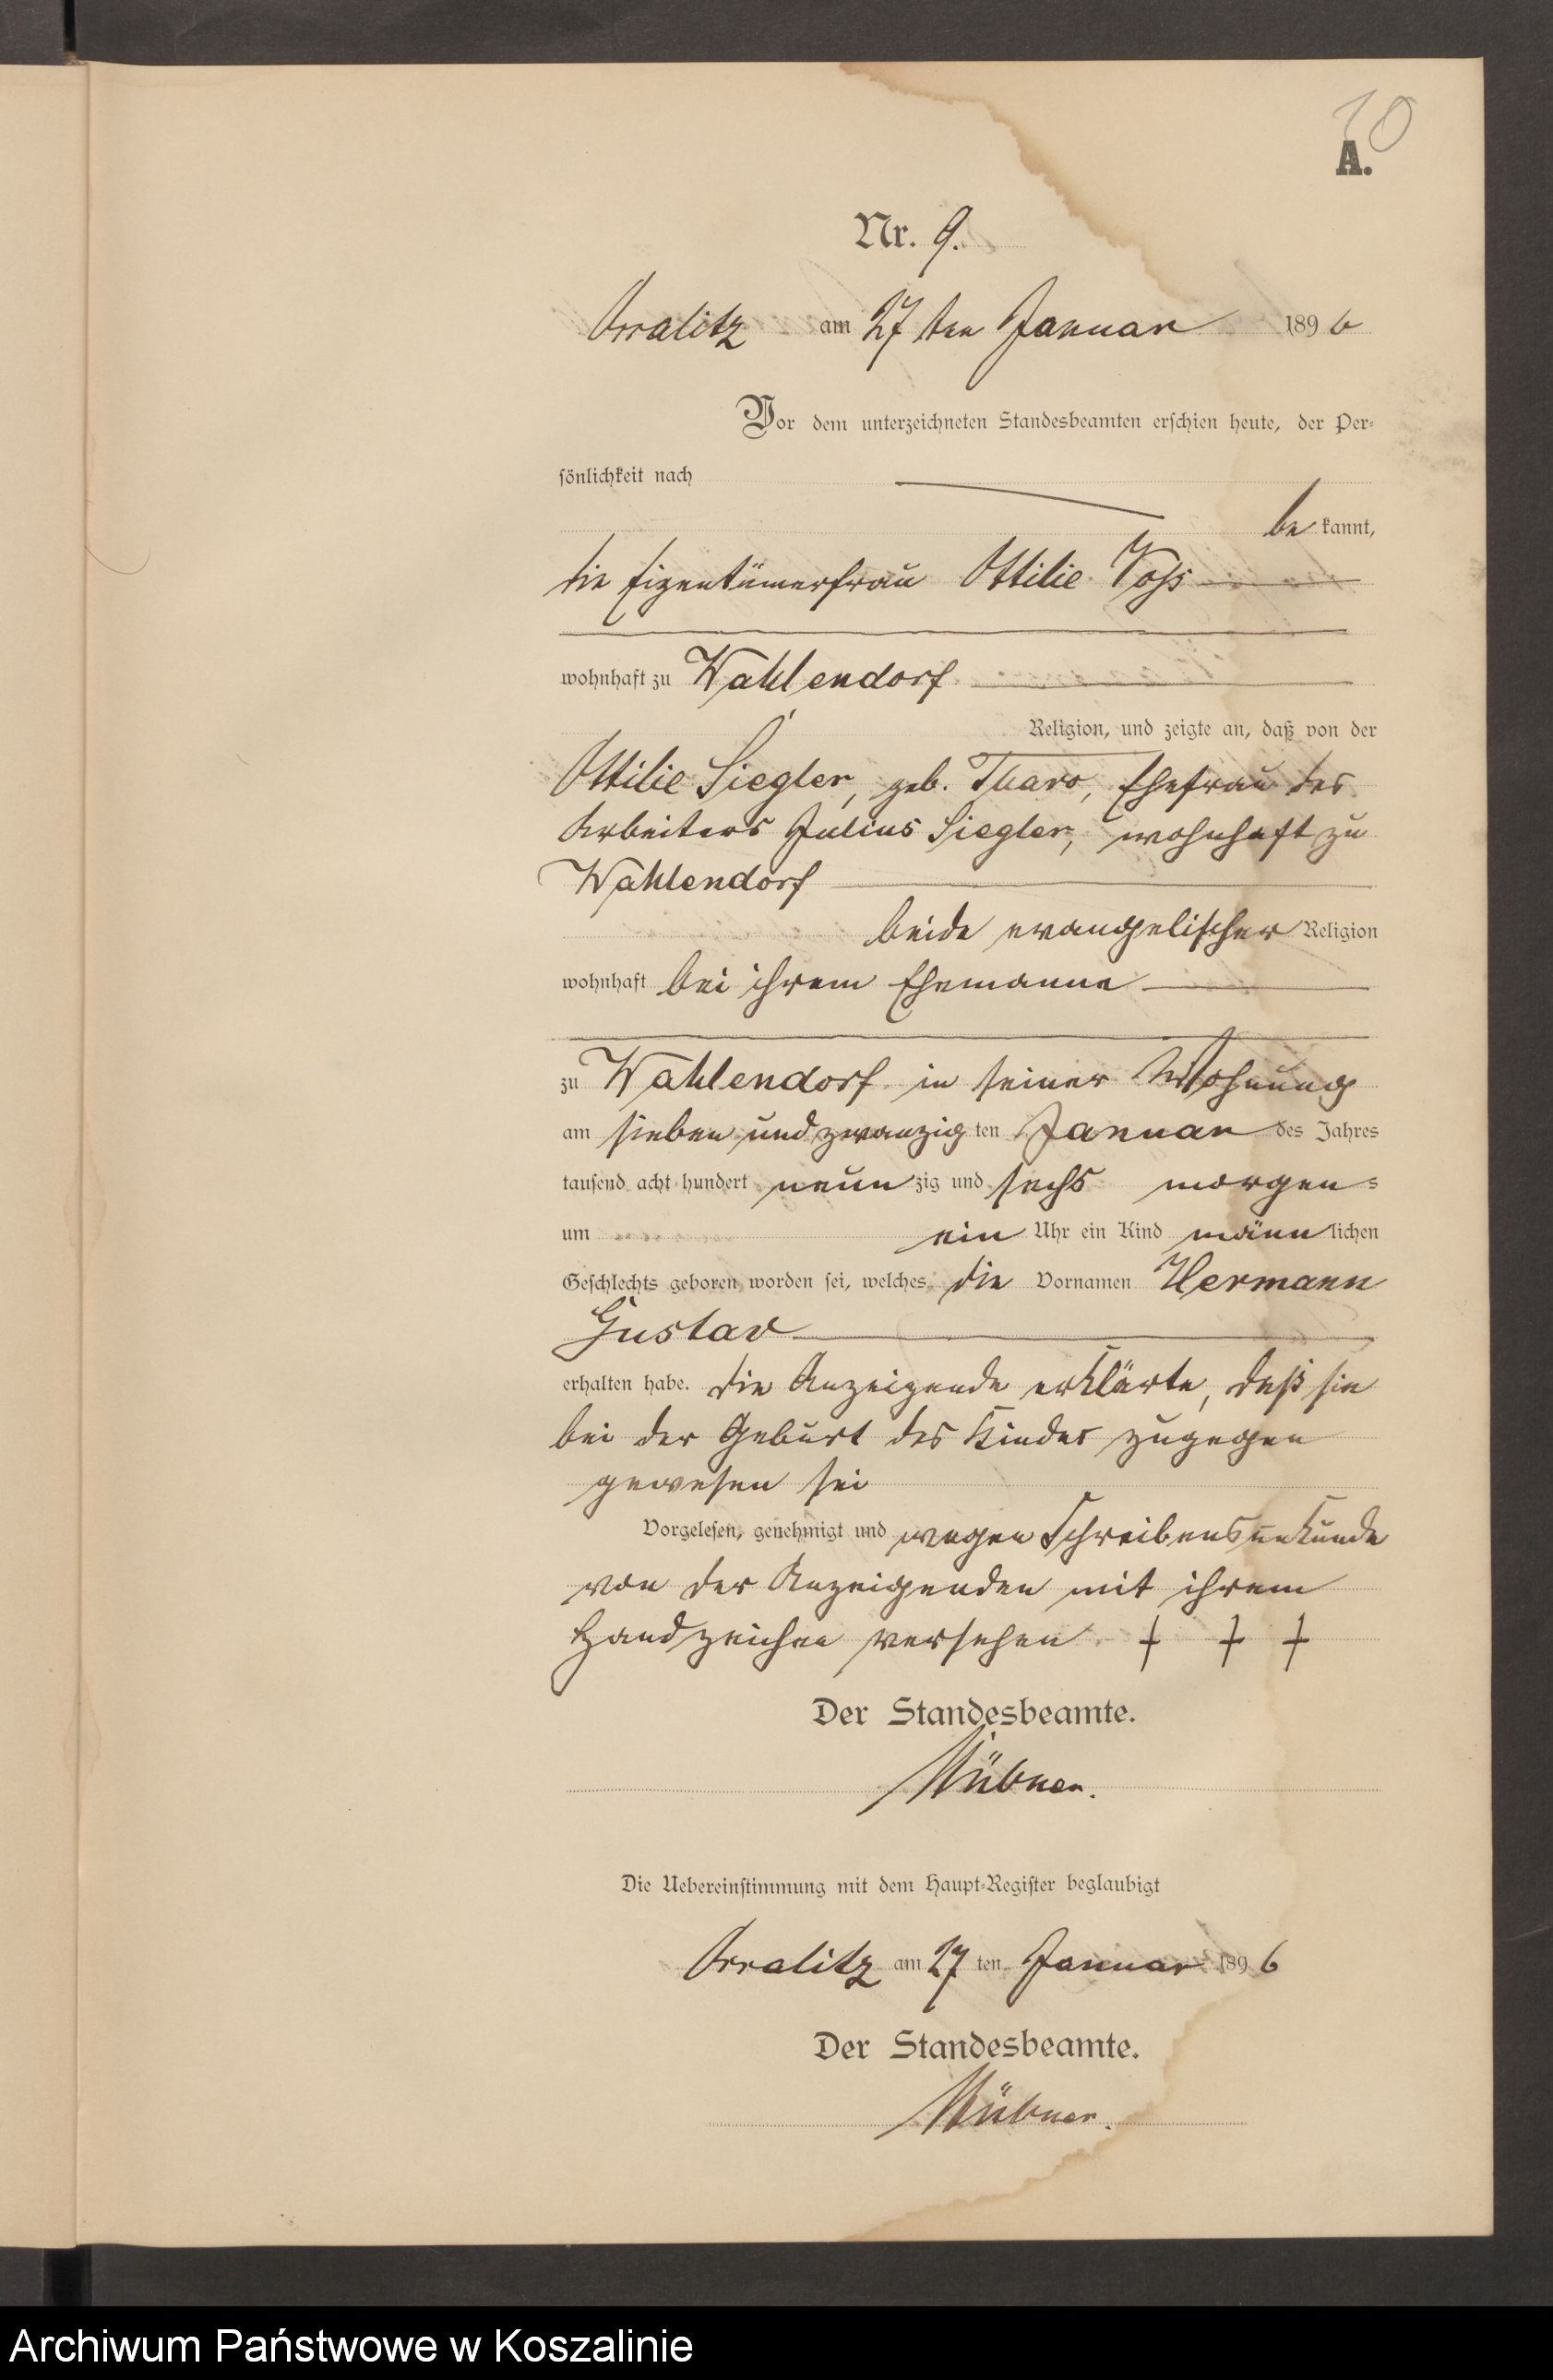 10
A.
Nr. 9.
am 27 ten Januar 1896
Vor dem unterzeichneten Standesbeamten erschien heute, der Per-
sönlichkeit nach
be kannt,
die Eigentümerfrau Ottilie Voß
wohnhaft zu Wahlendorf
Religion, und zeigte an, daß von der
Ottilie Siegler, geb. Tharo, Ehefrau des
Arbeiters Julius Siegler, wohnhaft zu
Wahlendorf
beide evangelischer Religion
wohnhaft bei ihrem Ehemanne
zu Wahlendorf in seiner Wohnung
am sieben und zwanzig ten Januar des Jahres
tausend acht hundert neun zig und sechs morgens
um ein Uhr ein Kind männ lichen
Geschlechts geboren worden sei, welches die Vornamen Hermann
Gustav
erhalten habe. Die Anzeigende erklärte, daß sie
bei der Geburt des Kindes zugegen
gewesen sei
Vorgelesen, genehmigt und wegen Schreibensunkunde
von der Anzeigenden mit ihrem
Handzeichen versehen + + +
Der Standesbeamte.
Die Uebereinstimmung mit dem Haupt-Register beglaubigt
am 27 ten Januar 1896
Der Standesbeamte.
Archiwum Państwowe w Koszalinie